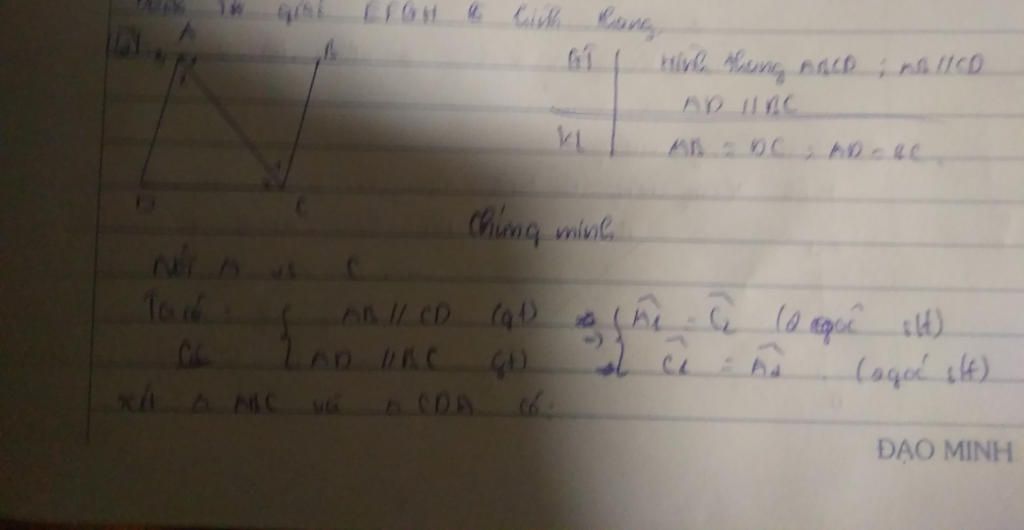 tứ giác EFGH là hình thang
A B
GT Hình thang ABCD ; AB // CD
AD // BC
KL AB = DC ; AD = BC
D C
Chứng minh
Nối A vs C
Ta có : { AB // CD (gt) => { Â1 = Ĉ1 (2 góc slt)
{ AD // BC (gt) { Ĉ2 = Â2 (2 góc slt)
xét Δ ABC và Δ CDA có:
ĐẠO MINH